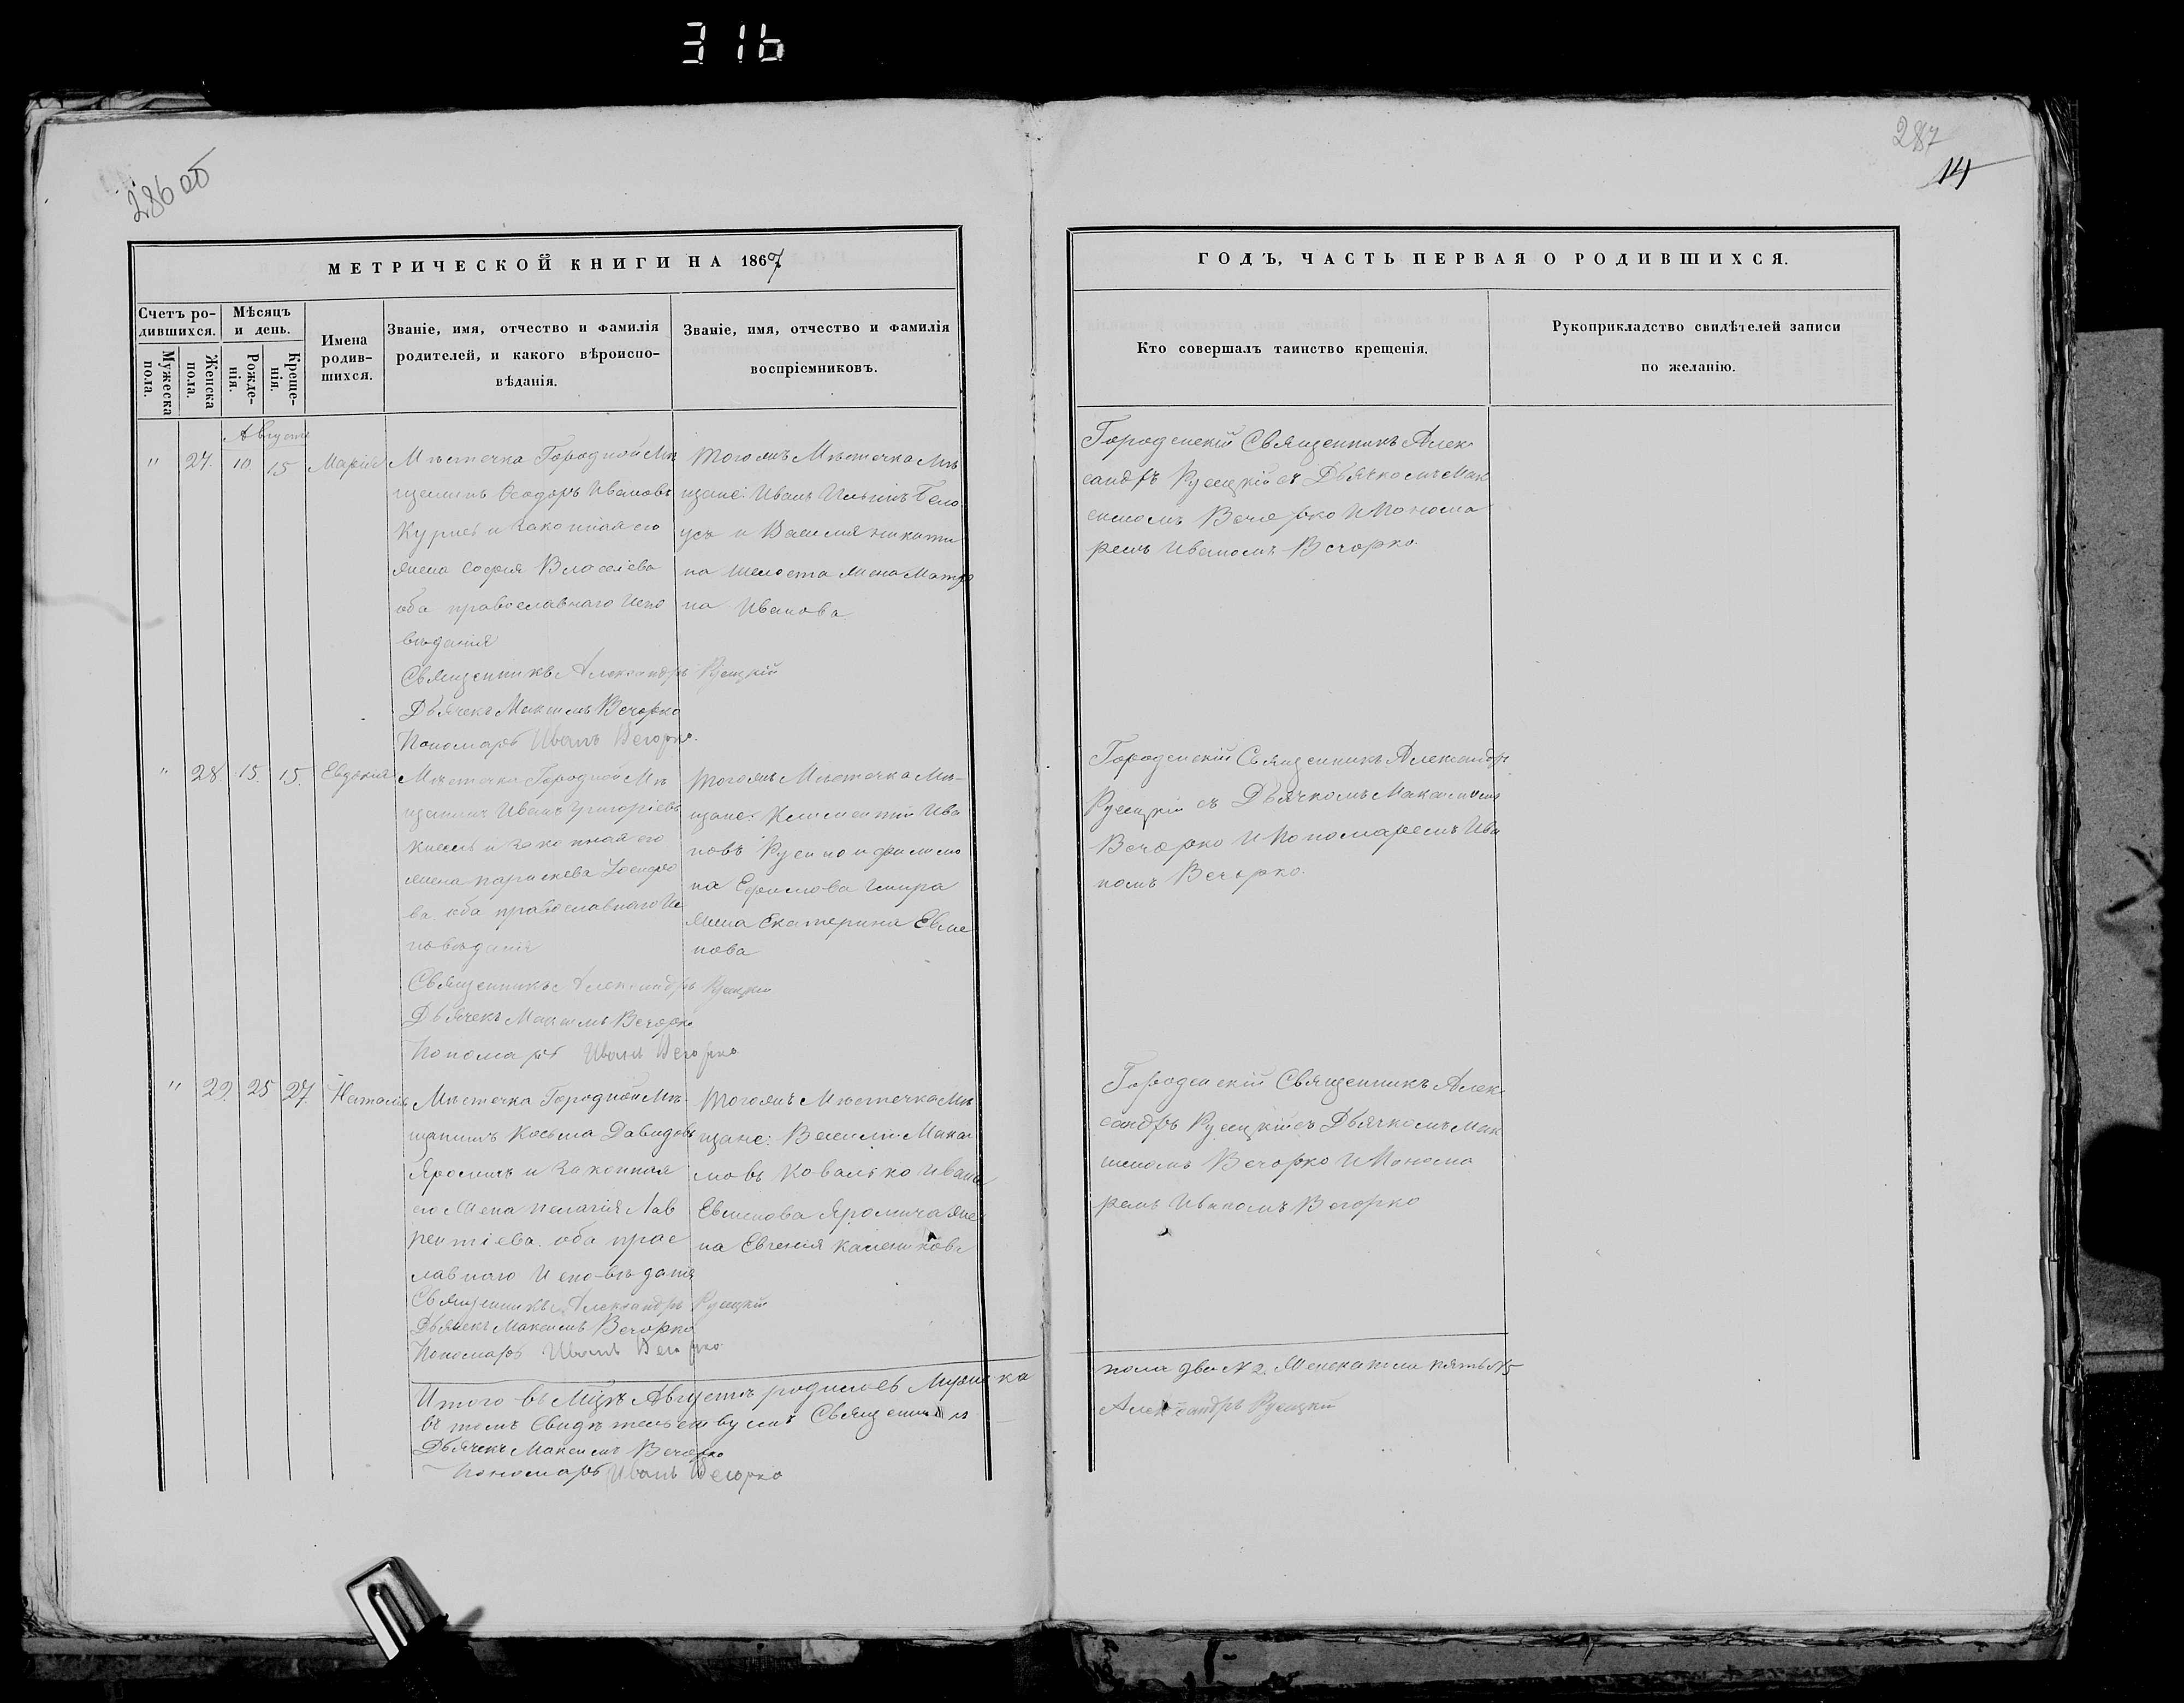 316
286 об
287
14
МЕТРИЧЕСКОЙ КНИГИ НА 1867
Счетъ ро-
дившихся.
Мужеска
пола.
Женска
пола.
Мѣсяцъ
и день.
Рожде-
нія.
Креще-
нія.
Имена
родив-
шихся.
Званіе, имя, отчество и фамилія
родителей, и какого вѣроиспо-
вѣданія.
Званіе, имя, отчество и фамилія
воспріемниковъ.
ГОДЪ, ЧАСТЬ ПЕРВАЯ О РОДИВШИХСЯ.
Кто совершалъ таинство крещенія.
Рукоприкладство свидѣтелей записи
по желанію.
Августа
" 27. 10 15 Марія
Мѣстечка Городной Мѣ
щанинъ Ѳеодоръ Ивановъ
и законная его
жена Софія Власіева
оба православнаго Испо
вѣданія
Священникъ Александръ Русецкій
Дьячекъ Максимъ Вечорко
Пономарь Иванъ Вечорко.
Тогожъ Мѣстечка Мѣ
щане: Иванъ Ильинъ Бело
усъ и Василія Никити
на Шелеста жена Матро
на Иванова
Городенскій Священникъ Алек
сандръ Русецкій съ Дьячкомъ Мак
симомъ Вечорко и Понома
ремъ Иваномъ Вечорко.
" 28. 15. 15. Евдокія
Мѣстечка Городной Мѣ
щанинъ Иванъ Григоріевъ
и законная его
жена Параскева Іосифо
ва. оба православнаго Ис
повѣданія
Священникъ Александръ Русецкій
Дьячекъ Максимъ Вечорко
Пономарь Иванъ Вечорко
Тогожъ Мѣстечка Мѣ-
щане: Климентій Ива
новъ и Филимо
на Ефимова
жена Екатерина Евме
нова
Городенскій Священникъ Александръ
Русецкій съ Дьячкомъ Максимомъ
Вечорко и Пономаремъ Ива
номъ Вечорко.
" 29. 25 27. Наталія
Мѣстечка Городной Мѣ-
щанинъ Косьма Давидовъ
Яромичъ и законная
его жена Пелагія Лав
рентіева. оба право
славнаго Исповѣданія
Священникъ Александръ Русецкій
Дьячекъ Максимъ Вечорко
Пономарь Иванъ Вечорко
Тогожъ Мѣстечка Мѣ
щане: Василій Макси
мовъ Ковалько Ивана
Евменова Яромича же
на Евгенія
Городенскій Священникъ Алек
сандръ Русецкій съ Дьячкомъ Мак
симомъ Вечорко и Понома
ремъ Иваномъ Вечорко
Итого въ Мцѣ Августѣ родилось Мужеска
пола два N 2. Женска пять N 5
въ томъ свидѣтельствуемъ Священникъ
Александръ Русецкій
Дьячекъ Максимъ Вечорко
Пономарь Иванъ Вечорко